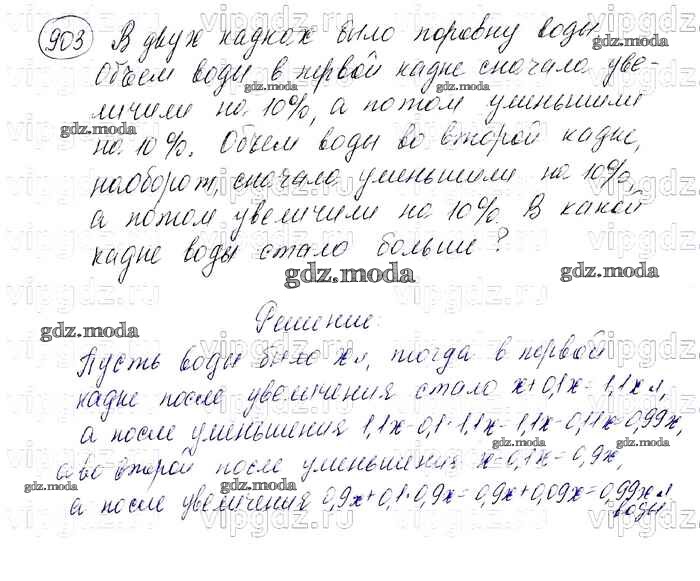 903 В двух кадках было поровну воды.
Объем воды в первой кадке сначала уве-
личили на 10%, а потом уменьшили
на 10%. Объем воды во второй кадке,
наоборот, сначала уменьшили на 10%,
а потом увеличили на 10% В какой
кадке воды стало больше?
Решение:
Пусть воды было x л, тогда в первой
кадке после увеличения стало x+0,1x=1,1x л,
а после уменьшения 1,1x-0,1·1,1x=1,1x-0,11x=0,99x,
а во второй после уменьшения x-0,1x=0,9x,
а после увеличения 0,9x+0,1·0,9x=0,9x+0,09x=0,99x л
воды
gdz.moda
gdz.moda
gdz.moda
gdz.moda
gdz.moda
gdz.moda
gdz.moda
gdz.moda
gdz.moda
gdz.moda
gdz.moda
gdz.moda
gdz.moda
vipgdz.ru
vipgdz.ru
vipgdz.ru